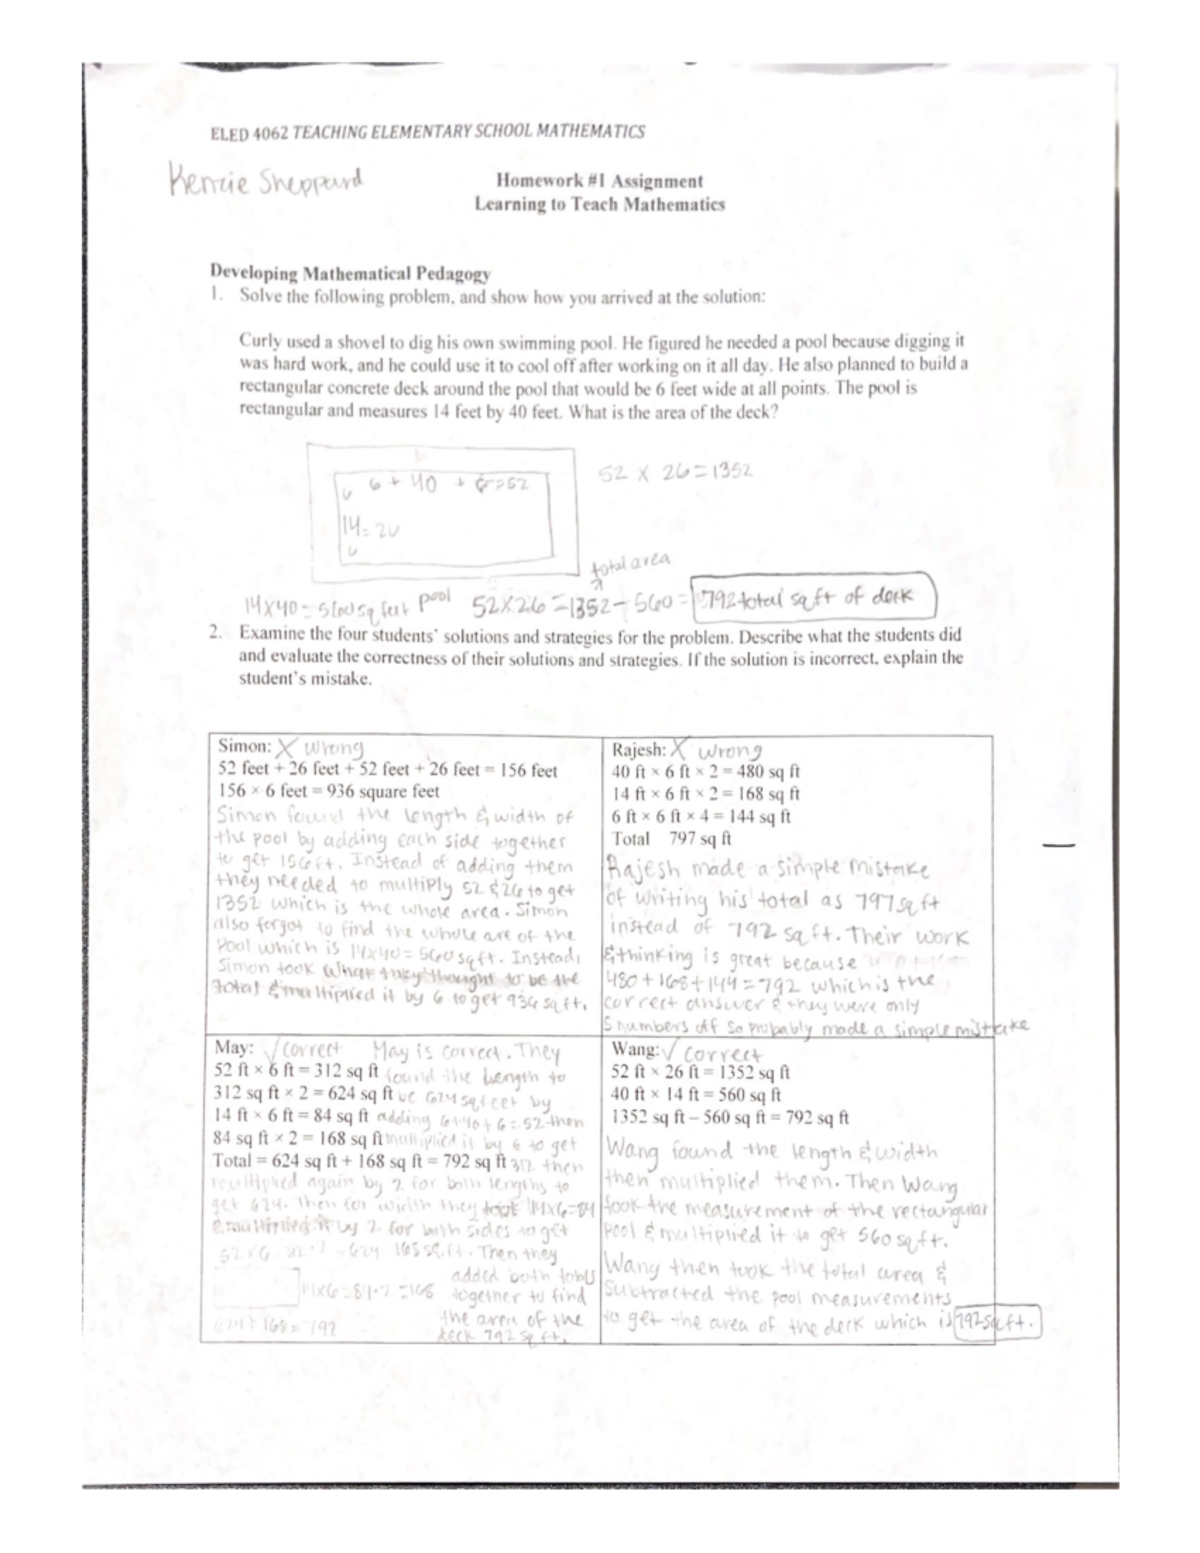 ELED 4062 TEACHING ELEMENTARY SCHOOL MATHEMATICS
Sheppard
Homework #1 Assignment
Learning to Teach Mathematics
Developing Mathematical Pedagogy
1. Solve the following problem, and show how you arrived at the solution:
Curly used a shovel to dig his own swimming pool. He figured he needed a pool because digging it
was hard work, and he could use it to cool off after working on it all day. He also planned to build a
rectangular concrete deck around the pool that would be 6 feet wide at all points. The pool is
rectangular and measures 14 feet by 40 feet. What is the area of the deck?
6
6 6 + 40 + 6=52
14=20
6
52 x 26=1352
total area
14x40=560 sq feet pool 52x26=1352-560= 792 total sq ft of deck
2. Examine the four students' solutions and strategies for the problem. Describe what the students did
and evaluate the correctness of their solutions and strategies. If the solution is incorrect, explain the
student's mistake.
Simon: X wrong
52 feet + 26 feet + 52 feet + 26 feet = 156 feet
156 × 6 feet = 936 square feet
Simon found the length & width of
the pool by adding each side together
to get 156ft. Instead of adding them
they needed to multiply 52 & 26 to get
1352 which is the whole area. Simon
also forgot to find the whole are of the
pool which is 14x40=560sqft. Instead,
Simon took what they thought to be the
total & multiplied it by 6 to get 936 sq ft.
Rajesh: X wrong
40 ft × 6 ft × 2 = 480 sq ft
14 ft × 6 ft × 2 = 168 sq ft
6 ft × 6 ft × 4 = 144 sq ft
Total 797 sq ft
Rajesh made a simple mistake
of writing his total as 797sqft
instead of 792 sq ft. Their work
& thinking is great because
480+168+144=792 which is the
correct answer & they were only
5 numbers off so probably made a simple mistake
May: √ correct May is correct. They
52 ft × 6 ft = 312 sq ft found the length to
312 sq ft × 2 = 624 sq ft be 624 sq feet by
14 ft × 6 ft = 84 sq ft adding 6+40+6=52 then
84 sq ft × 2 = 168 sq ft multiplied it by 6 to get
Total = 624 sq ft + 168 sq ft = 792 sq ft 312 then
multiplied again by 2 for both lengths to
get 624. Then for width they took 14x6=84
& multiplied it by 2 for both sides to get
52x6=312·2=624 168 sq.ft. Then they
added both totals
14x6=84·2=168 together to find
the area of the
624+168=792
deck 792 sq ft.
Wang: √ correct
52 ft × 26 ft = 1352 sq ft
40 ft × 14 ft = 560 sq ft
1352 sq ft – 560 sq ft = 792 sq ft
Wang found the length & width
then multiplied them. Then Wang
took the measurement of the rectangular
pool & multiplied it to get 560 sq ft.
Wang then took the total area &
subtracted the pool measurements
to get the area of the deck which is 792sqft.